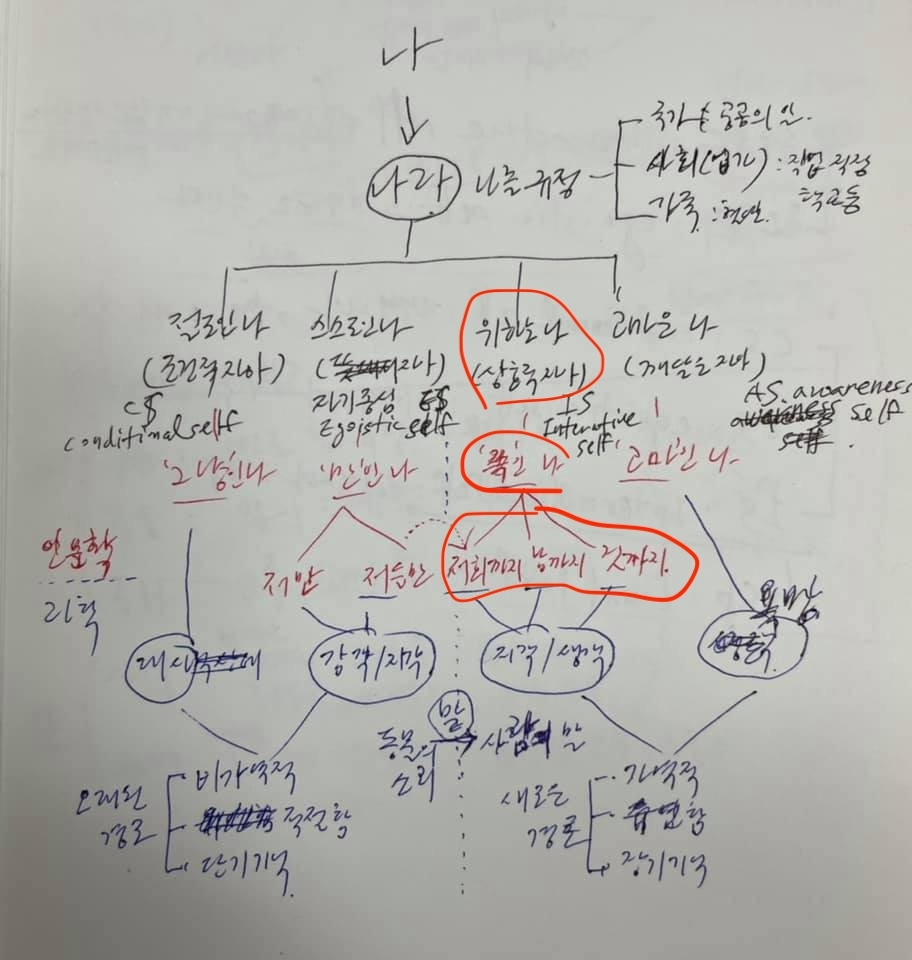 나
나라 나를 규정
국가 공공의 일.
사회(업가) : 직업 직장
학교등
가족 :혈연.
절로인나 스스로인나 위하는나 고마운 나
(조건적자아) (자아) (상호적자아) (깨달은자아)
CS 자기중심 ES IS AS. awareness
conditinal self Egoistic self Interactive self self
'그냥'인나 '만'인 나 '쪽'인 나 '고마'인 나
인문학 저만 저들만 저희까지 남까지 것까지.
리학
대사 감각/지각 지각/생각 욕망
말
동물의 소리 사람의 말
오래된 경로 비가역적
적절함
단기기억
새로운 경로 가역적
유연함
장기기억